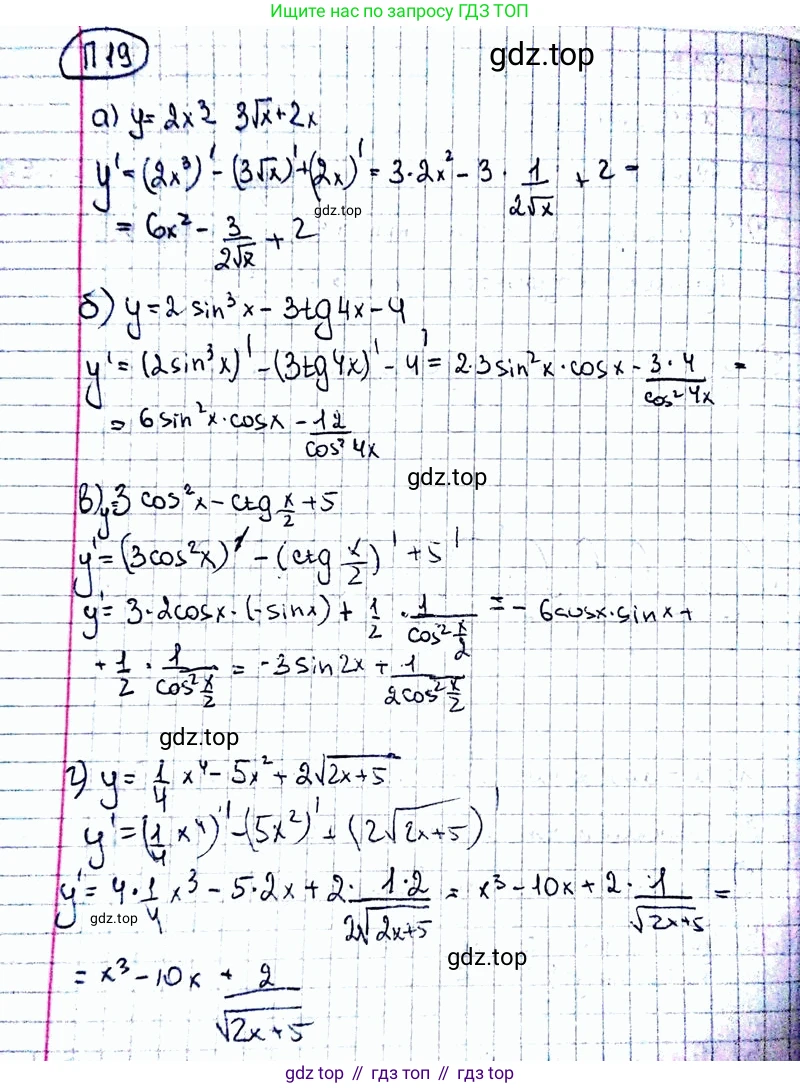 Ищите нас по запросу ГДЗ ТОП
П 19
gdz.top
а) y = 2x³ - 3√x + 2x
y' = (2x³)' - (3√x)' + (2x)' = 3·2x² - 3 · 1/(2√x) + 2 =
gdz.top
= 6x² - 3/(2√x) + 2
б) y = 2 sin³ x - 3tg 4x - 4
y' = (2sin³ x)' - (3tg 4x)' - 4' = 2·3 sin² x · cos x - (3·4)/(cos² 4x) =
= 6 sin² x · cos x - 12/(cos² 4x)
gdz.top
в) y = 3 cos² x - ctg x/2 + 5
y' = (3cos² x)' - (ctg x/2)' + 5'
y' = 3·2cosx · (-sinx) + 1/2 · 1/(cos² x/2) = - 6cosx · sin x +
+ 1/2 · 1/(cos² x/2) = -3 sin 2x + 1/(2cos² x/2)
gdz.top
г) y = 1/4 x⁴ - 5x² + 2√(2x+5)
y' = (1/4 x⁴)' - (5x²)' + (2√(2x+5))'
y' = 4·1/4 x³ - 5·2x + 2 · (1·2)/(2√(2x+5)) = x³ - 10x + 2 · 1/√(2x+5) =
gdz.top
gdz.top
= x³ - 10x + 2/√(2x+5)
gdz.top // гдз топ // gdz.top